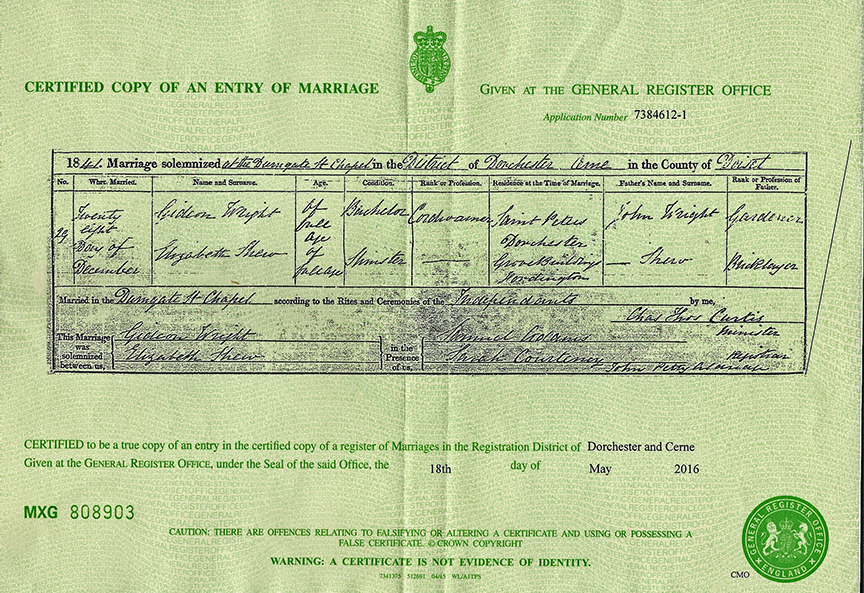 CERTIFIED COPY OF AN ENTRY OF MARRIAGE
GIVEN AT THE GENERAL REGISTER OFFICE
Application Number 7384612-1
1841. Marriage solemnized at the Durngate St Chapel in the District of Dorchester Cerne in the County of Dorset
No. When Married. Name and Surname. Age. Condition. Rank or Profession. Residence at the Time of Marriage. Father's Name and Surname. Rank or Profession of Father.
29 Twenty eight Day of December
Gideon Wright of full age Bachelor Cordwainer Saint Peters Dorchester John Wright Gardener
Elizabeth Shew of full age Spinster — Grove Buildings Fordington — Shew Bricklayer
Married in the Durngate St Chapel according to the Rites and Ceremonies of the Independents by me,
Chas Thos Curtis
Minister
This Marriage was solemnized between us, Gideon Wright
Elizabeth Shew
in the Presence of us, Samuel Adams
Sarah Courteney
Registrar
John Petty
CERTIFIED to be a true copy of an entry in the certified copy of a register of Marriages in the Registration District of Dorchester and Cerne
Given at the GENERAL REGISTER OFFICE, under the Seal of the said Office, the 18th day of May 2016
MXG 808903
CAUTION: THERE ARE OFFENCES RELATING TO FALSIFYING OR ALTERING A CERTIFICATE AND USING OR POSSESSING A
FALSE CERTIFICATE. © CROWN COPYRIGHT
WARNING: A CERTIFICATE IS NOT EVIDENCE OF IDENTITY.
7341375 512691 04/15 WL/AITPS
CMO
GENERAL REGISTER OFFICE
ENGLAND